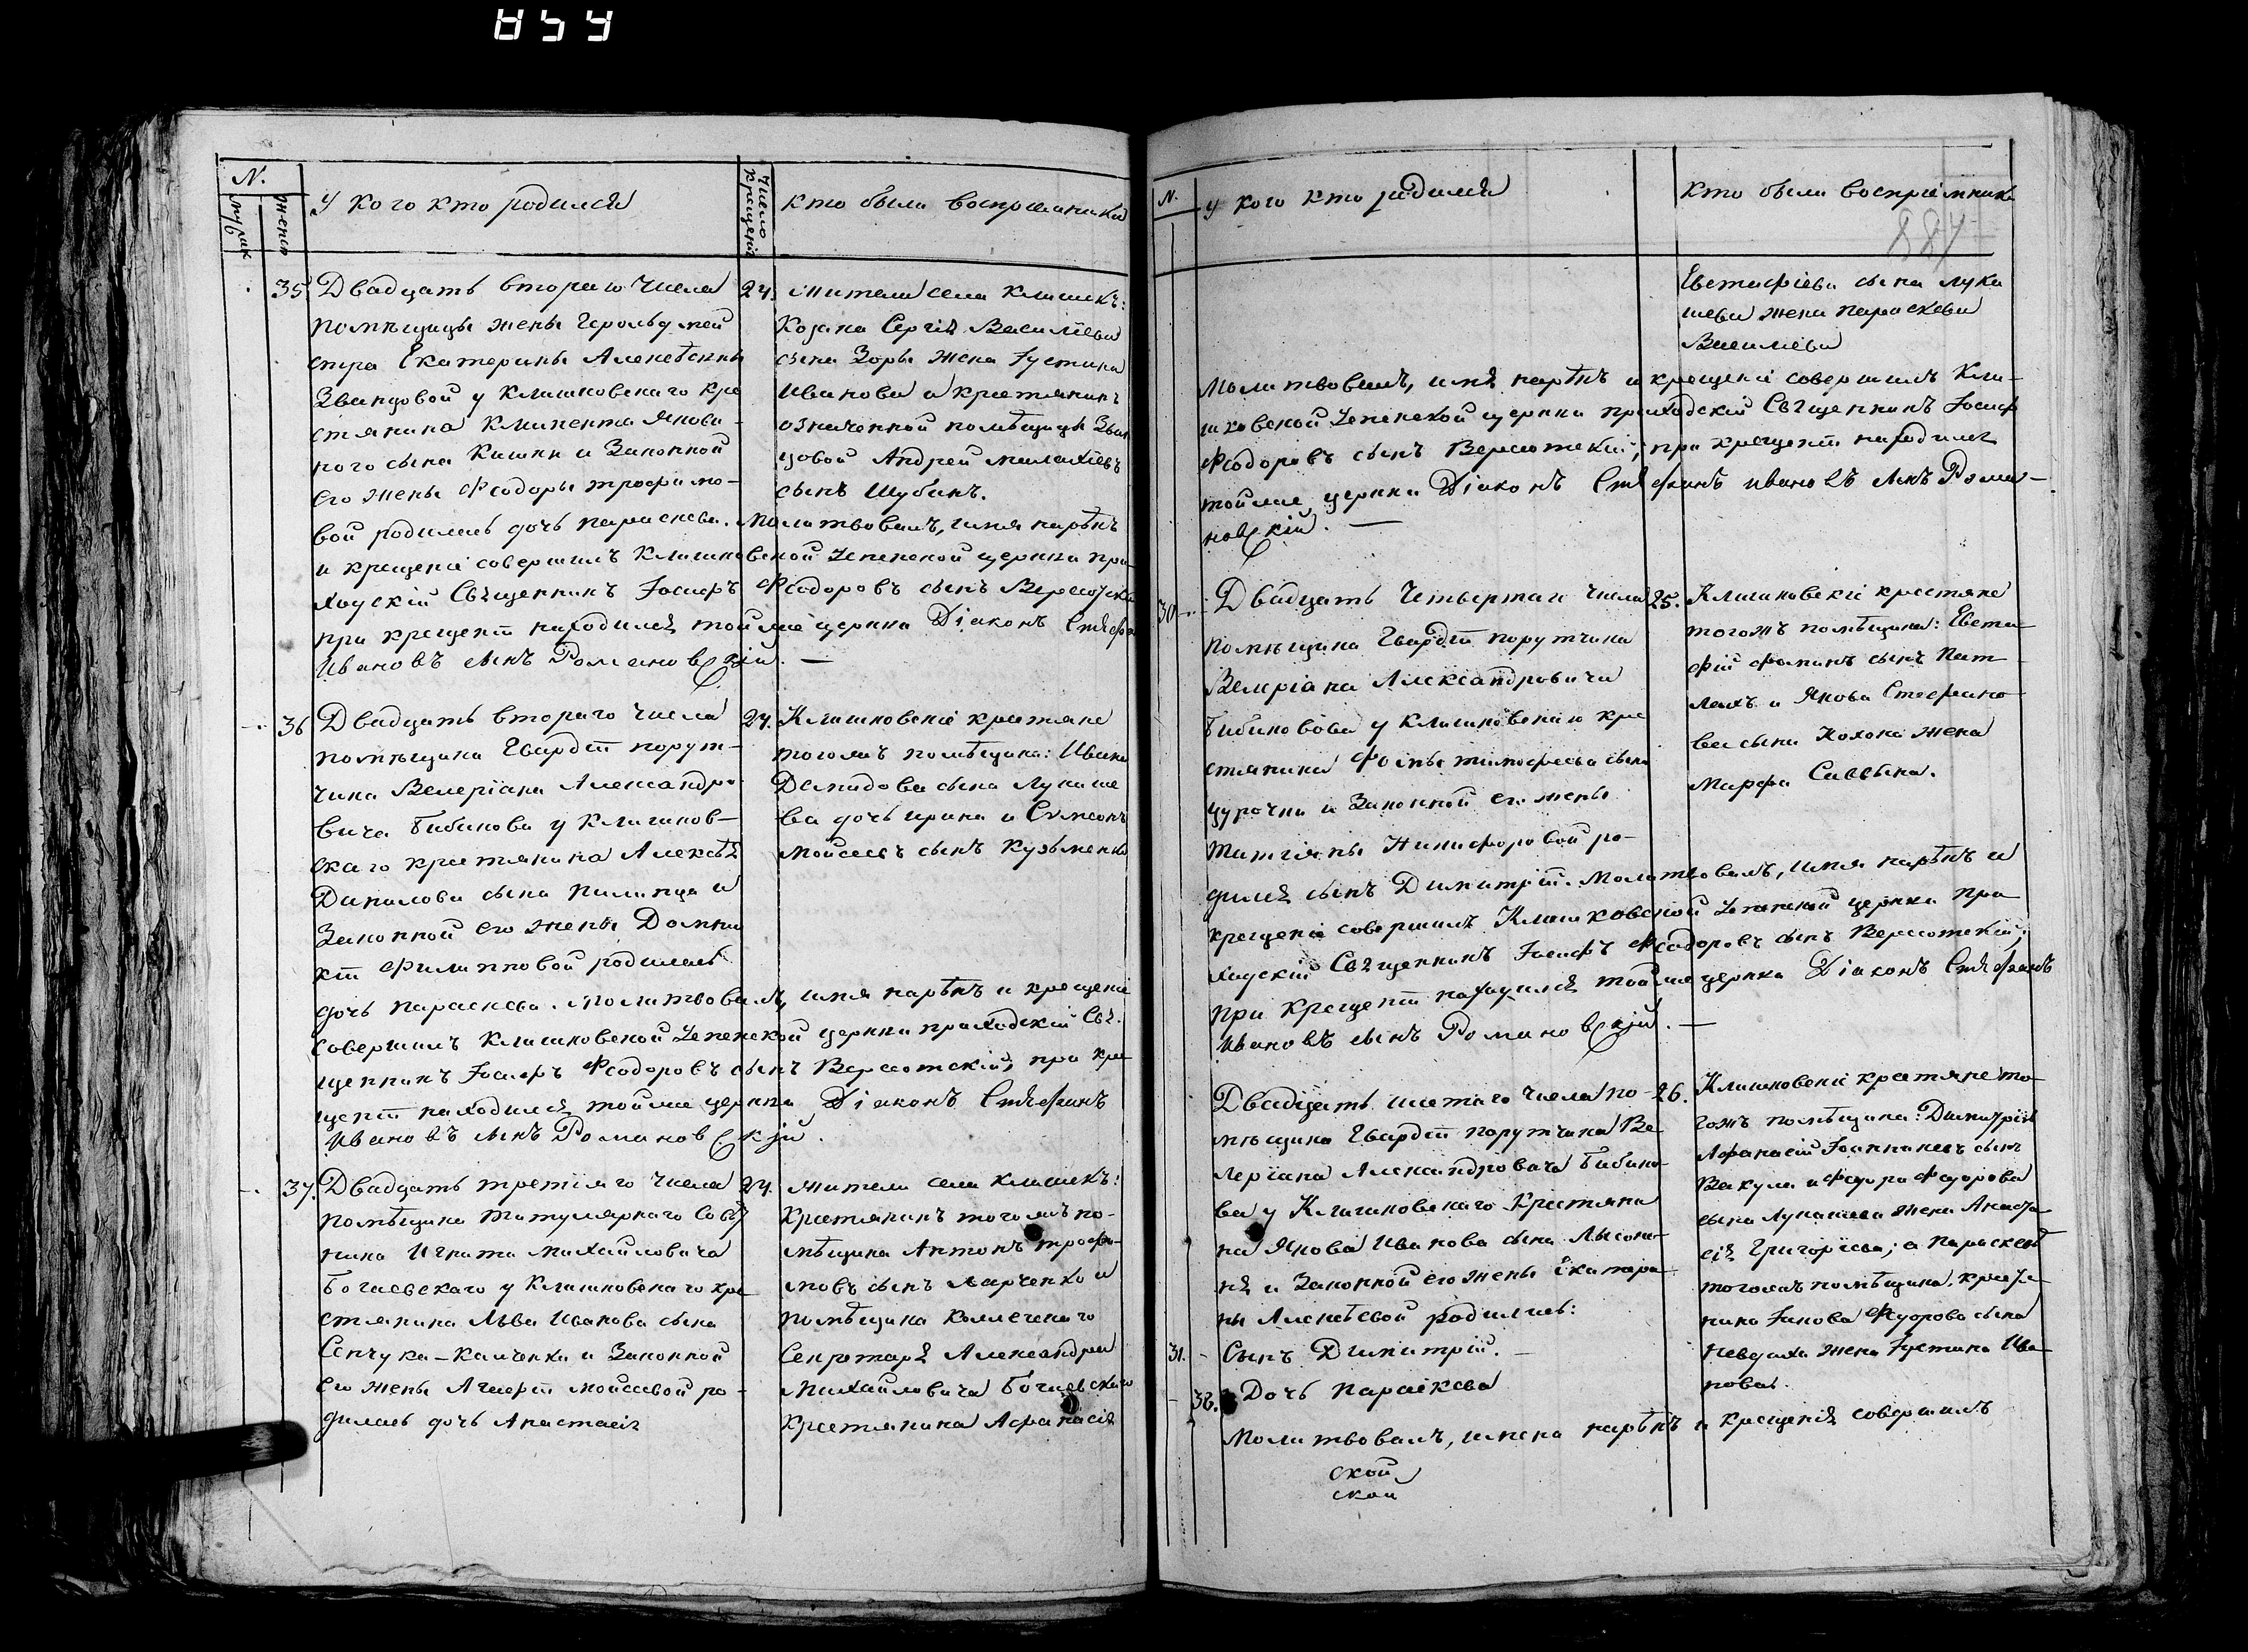 N.
мужск
женск
У кого кто родился
Число крещенія
кто были восприемники
35
Двадцать втораго числа
помѣщицы жены Герольдмей
стра Екатерины Алексѣевны
Званцовой у Клишковскаго кре
стянина Климента Якови-
ного сына Кишки и Законной
его жены Феодоры трофимо-
вой родилась дочь параскева. Молитвовалъ, имя нарѣкъ
и крещеніе совершилъ Клишковской Успенской церкви при-
ходскій Священникъ Іосифъ Феодоровъ сынъ Вересотскій
при крещеніи находился тойже церкви Діаконъ Стефанъ
Ивановъ сынъ Романовскій. —
24.
жители села Клишекъ:
Козака Сергія Василіева
сына Зоры жена Іустина
Иванова и крестянинъ
означенной помѣщицы Зван
цовой Андрей Малахіевъ
сынъ Шубинъ.
36
Двадцать втораго числа
помѣщика Гвардіи порут-
чика Велеріана Александро
вича Бибикова у Клишков-
скаго крестянина Алексѣя
Данилова сына Пилипца и
Законной его жены Домни
кіи Филипповой родилась
дочь параскева. Молитвовалъ, имя нарѣкъ и крещеніе
совершилъ Клишковской Успенской церкви приходскій Свя-
щенникъ Іосифъ Феодоровъ сынъ Вересотскій, при кре
щеніи находился тойже церкви Діаконъ Стефанъ
Ивановъ сынъ Романовскій.
24.
Клишковскіе крестяне
тогожъ помѣщика: Ивана
Демидова сына Лукаше
ва дочь ирина и Симеонъ
Мойсеевъ сынъ Кузьменко
37.
Двадцать третіяго числа
помѣщика титулярнаго Совѣт
ника Игната Михайловича
Богаевскаго у Клишковскаго кре
стянина Льва Иванова сына
Сенчука-Калченка и Законной
его жены Агафіи Мойсеевой ро-
дилась дочь Анастасія
24.
жители села Клишекъ:
Крестянинъ тогожъ по-
мѣщика Антонъ трофи-
мовъ сынъ Марченко и
помѣщика Коллежскаго
Секретаря Александра
Михайловича Богаевскаго
крестянина Афанасія
N.
У кого кто родился
кто были восприемники
884
Евстафіева сына лука
шева жена параскева
Василіева
Молитвовалъ, имя нарѣкъ и крещеніе совершилъ Кли-
шковской Успенской церкви приходскій Священникъ Іосиф
Феодоровъ сынъ Вересотскій; при крещеніи находился
тойже церкви Діаконъ Стефанъ Ивановъ сынъ Рома-
новскій. —
30
Двадцать Четвертаго числа
помѣщика Гвардіи порутчика
Велеріана Александровича
Бибикова у Клишковскаго кре
стянина Фомы тимофеева сына
Цурочки и Законной его жены
Татіяны Никифоровой ро-
дился сынъ Димитрій. Молитвовалъ, имя нарѣкъ и
крещеніе совершилъ Клишковской Успенской церкви при
ходскій Священникъ Іосифъ Феодоровъ сынъ Вересотскій;
при крещеніи находился тойже церкви Діаконъ Стефанъ
Ивановъ сынъ Романовскій. —
25.
Клишковскіе крестяне
тогожъ помѣщика: Евста-
фій Фоминъ сынъ
и Якова Стефано
ва сына Кохона жена
Марфа Саввина.
Двадцать шестаго числа по-
мѣщика Гвардіи порутчика Ве
леріана Александровича Бибико-
ва у Клишковскаго Крестяни
на Якова Иванова сына Лысони-
ка и Законной его жены Екатери
ны Алексѣевой родились:
31. - Сынъ Димитрій. —
38. Дочь параскева
Молитвовалъ, имена нарѣкъ и крещенія совершилъ
ской
скои
26.
Клишковскіе крестяне то-
гожъ помѣщика: Димитрія
Афанасій Іоанникіевъ сынъ
Вакула и Федора Федорова
сына Лукашева жена Анаста-
сія Григоріева; а параскевѣ
тогожъ помѣщика крестя-
нина Іакова Федорова сына
жена Іустина Ива-
нова.